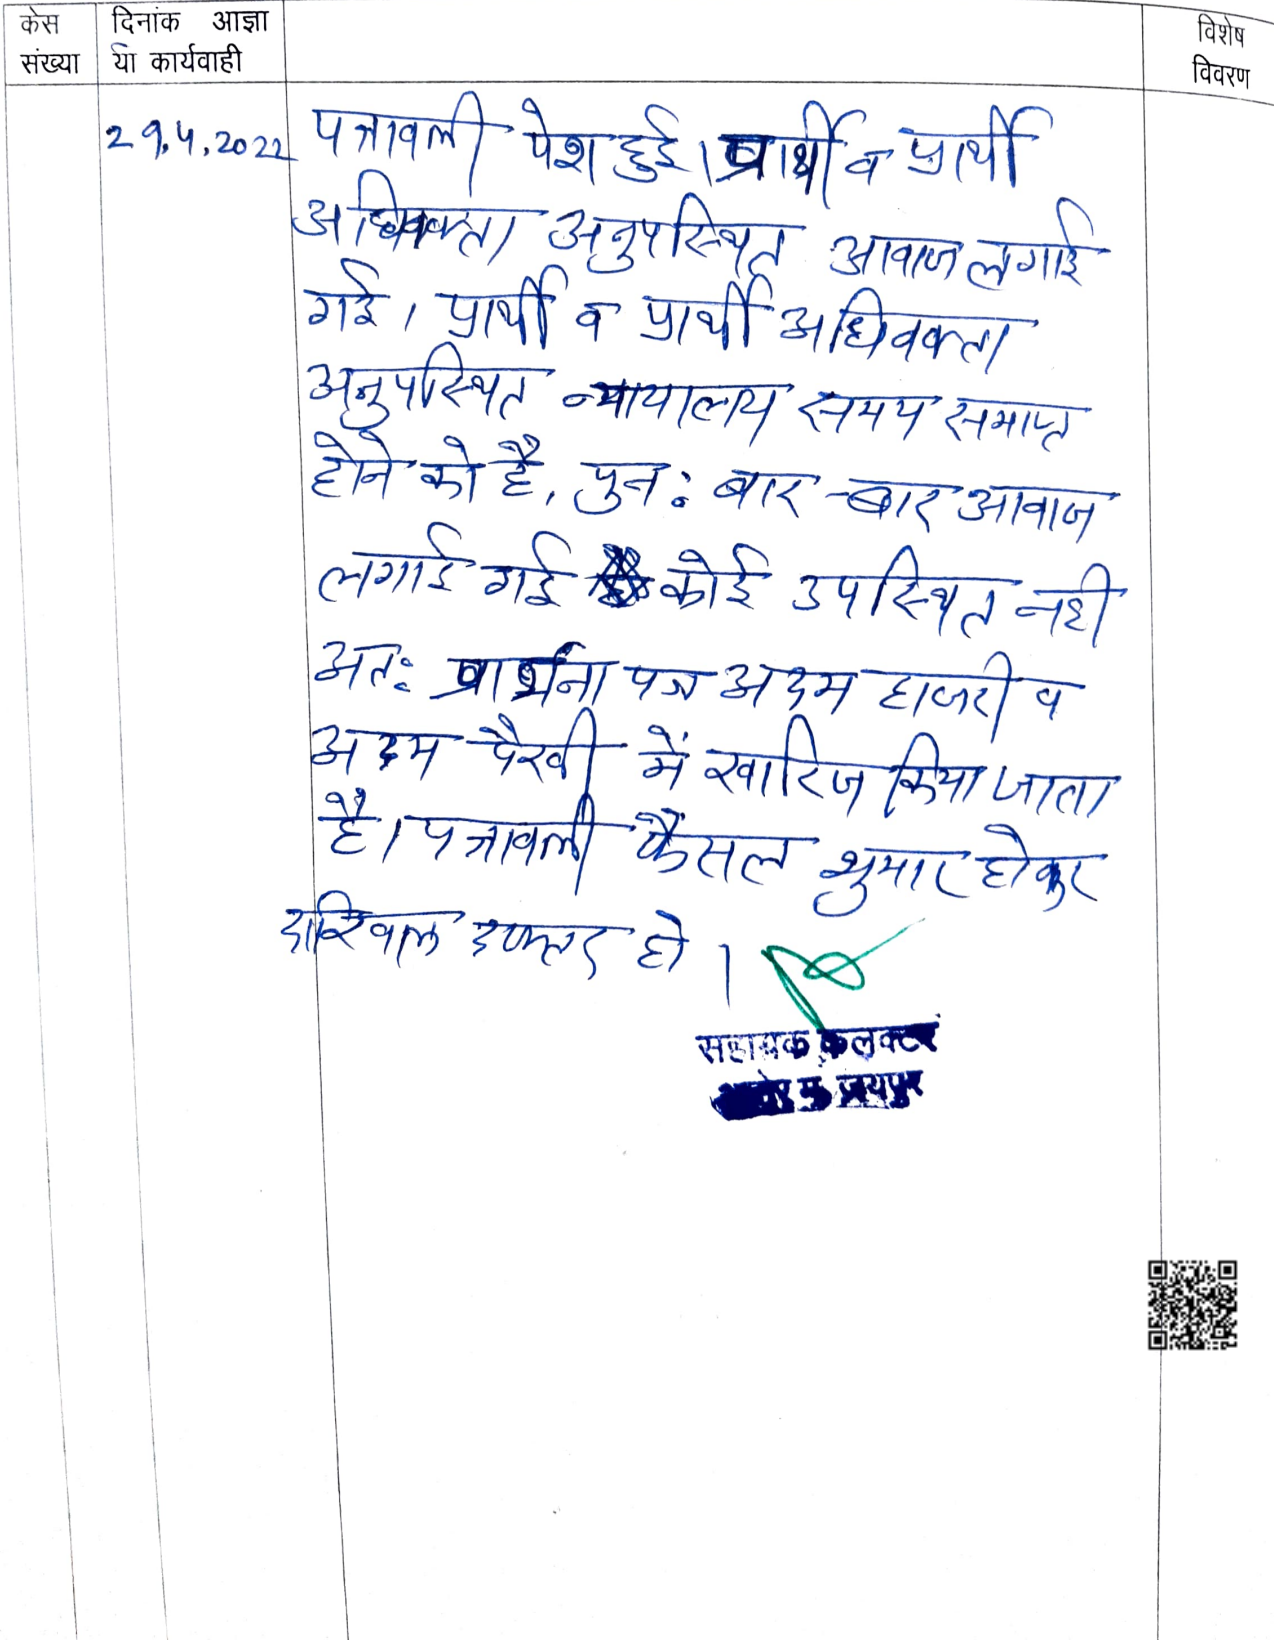 केस संख्या
दिनांक आज्ञा या कार्यवाही
विशेष विवरण
29.4.2022
पत्रावली पेश हुई। प्रार्थी व प्रार्थी
अधिवक्ता अनुपस्थित आवाज लगाई
गई। प्रार्थी व प्रार्थी अधिवक्ता
अनुपस्थित न्यायालय समय समाप्त
होने को है, पुन: बार-बार आवाज
लगाई गई कोई उपस्थित नही
अत: प्रार्थना पत्र अदम हाजरी व
अदम पैरवी में खारिज किया जाता
है। पत्रावली फैसल शुमार होकर
दाखिल दफ्तर हो।
सहायक कलक्टर
जयपुर